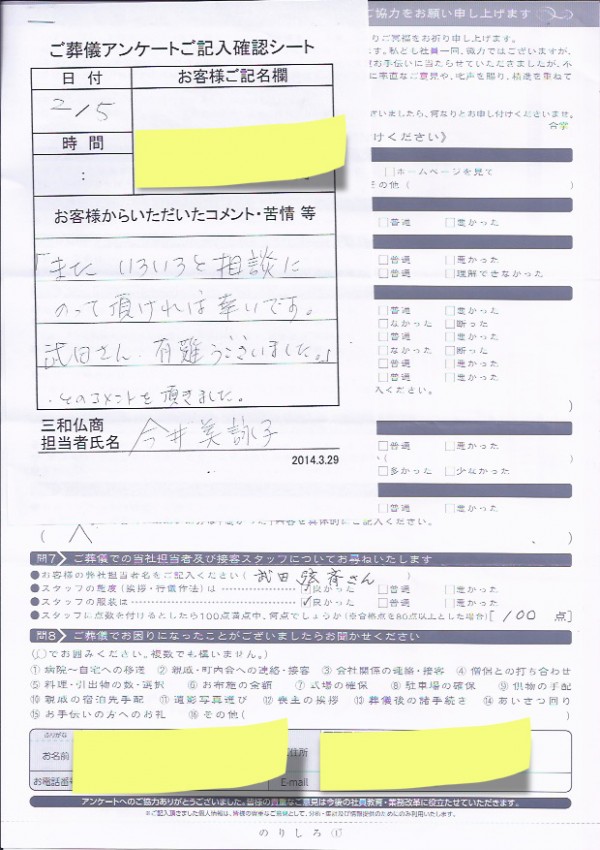 ご協力をお願い申し上げます
ご葬儀アンケートご記入確認シート
日付
お客様ご記名欄
2/5
時間
:
お客様からいただいたコメント・苦情 等
「また いろいろと相談に
のって頂ければ幸いです。
武田さん、有難うございました。」
・とのコメントを頂きました。
三和仏商
担当者氏名 今井美詠子
2014.3.29
合掌
けください》
□ホームページを見て
その他(
□普通 □悪かった
□普通 □悪かった
□普通 □理解できなかった
□普通 □悪かった
□なかった □断った
□普通 □悪かった
□なかった □断った
□普通 □悪かった
□普通 □悪かった
ください。
)
□普通 □悪かった
)
□多かった □少なかった
□普通 □悪かった
問7 ご葬儀での当社担当者及び接客スタッフについてお尋ねいたします
●お客様の弊社担当者名をご記入ください( 武田 さん )
●スタッフの態度(挨拶・行儀作法)は ☑良かった □普通 □悪かった
●スタッフの服装は ☑良かった □普通 □悪かった
●スタッフに点数を付けるとしたら100点満点中、何点でしょうか(※合格点を80点以上とした場合)[ 100 点]
問8 ご葬儀でお困りになったことがございましたらお聞かせください
(○でお囲みください。複数でも構いません。)
①病院〜自宅への移送 ②親戚・町内会への連絡・接客 ③会社関係の連絡・接客 ④僧侶との打ち合わせ
⑤料理・引出物の数・選択 ⑥お布施の金額 ⑦式場の確保 ⑧駐車場の確保 ⑨供物の手配
⑩親戚の宿泊先手配 ⑪遺影写真選び ⑫喪主の挨拶 ⑬葬儀後の諸手続き ⑭あいさつ回り
⑮お手伝いの方へのお礼 ⑯その他( )
ふりがな
お名前
住所
お電話番号
E-mail
アンケートへのご協力ありがとうございました。皆様の貴重なご意見は今後の社員教育・業務改革に役立たせていただきます。
のりしろ ①